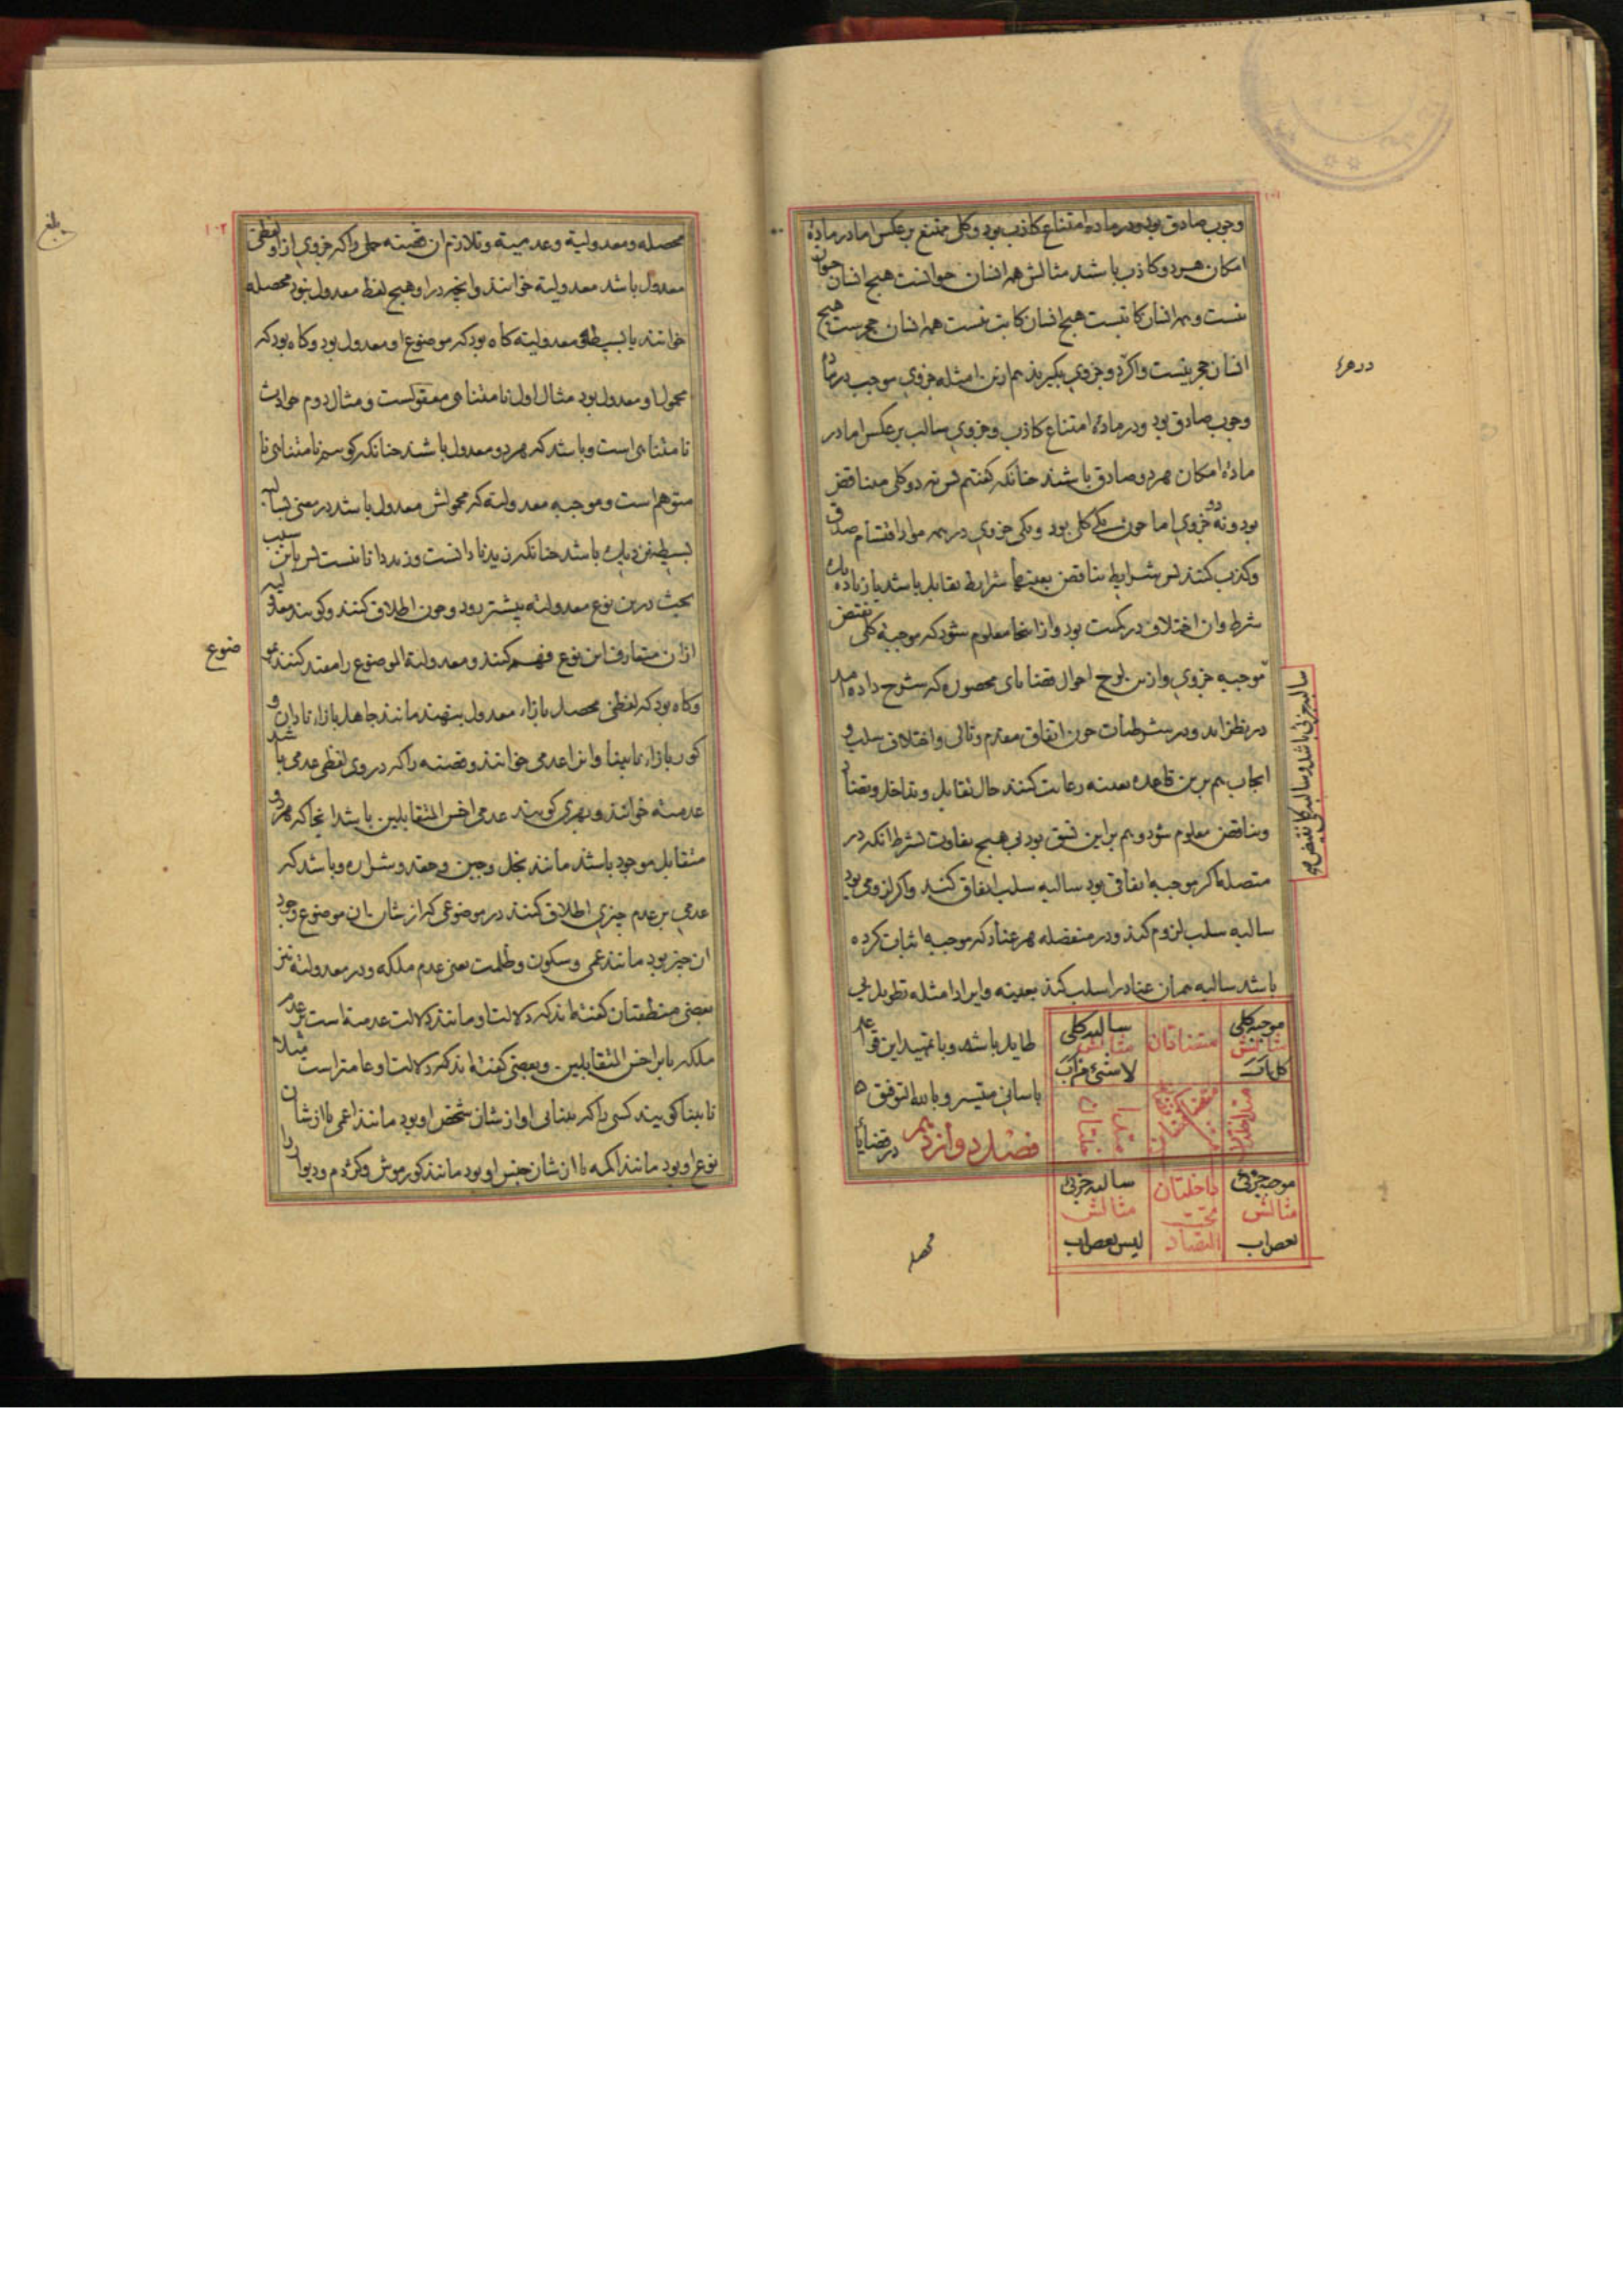 ۱۰۱
وجوب صادق بود و در مادهٔ امتناع کاذب بود و کلی ممتنع برعکس اما در مادهٔ
امکان هر دو کاذب باشد مثالش همه انسان حیوانست هیچ انسان حیوان
نیست و همه انسان کاتبست هیچ انسان کاتب نیست همه انسان حجرست هیچ
انسان حجر نیست و اگر دو جزوی بگیرند هم ازین امثله جزوی موجب در مادهٔ
وجوب صادق بود و در مادهٔ امتناع کاذب و جزوی سالب برعکس اما در
مادهٔ امکان هر دو صادق باشند چنانکه گفتیم پس نه دو کلی متناقض
بود و نه دو جزوی اما چون یکی کلی بود و یکی جزوی در همه مواد اقتسام صدق
و کذب کنند پس شرایط تناقض بعینها شرایط تقابل باشد با زیاده یک
شرط و ان اختلاف در کمیت بود و از اینجا معلوم شود که موجبه کلی نقیض
موجبه جزوی و ازین لوح احوال قضایای محصوره که شرح داده امد
در نظر اید و در شرطیات چون اتفاق مقدم و تالی و اختلاف سلب و
ایجاب هم برین قاعده بعینه رعایت کنند حال تقابل و تداخل و تضاد
و تناقض معلوم شود و هم براین نسق بود بی هیچ تفاوت بشرط انکه در
متصله اگر موجبه اتفاقی بود سالبه سلب اتفاق کند و اگر لزومی بود
سالبه سلب لزوم کند و در منفصله هر عناد که موجبه اثبات کرده
باشد سالبه همان عناد را سلب کند بعینه و ایراد امثله تطویل بی
طایل باشد و با تمهید این قواعد
باسانی متیسر و بالله التوفیق
فصل دوازدهم در قضایا
سالبه جزئی باشد و سالبه کلی نقیض
موجبه کلی مثالش کل اب
متضادتان
سالبه کلی مثالش لا شیء من اب
متداخلتان
متناقضتان
موجبه جزئی مثالش بعض اب
داخلتان تحت التضاد
سالبه جزئی مثالش لیس بعض اب
محصله
۱۰۲
محصله و معدولیة و عدمیة و تلازم ان قضیه حملی را که جزوی از او لفظی
معدول باشد معدولیة خوانند و انچه در او هیچ لفظ معدول نبود محصله
خوانند یا بسیطه و معدولیته گاه بود که موضوع او معدول بود و گاه بود که
محمول او معدول بود مثال اول نامتناهی معقولست و مثال دوم حوادث
نامتناهی است و باشد که هر دو معدول باشند چنانکه گوییم نامتناهی نا
متوهم است و موجبه معدولیه که محمولش معدول باشد در معنی بسالبه
بسیطه نزدیک باشد چنانکه زید نادانست و زید دانا نیست پس باین سبب
بحث درین نوع معدولیه بیشتر رود و چون اطلاق کنند و گویند معدولیه
ازان متعارف این نوع فهم کنند و معدولیة الموضوع را مقید کنند بموضوع
و گاه بود که لفظی محصل بازاء معدول بنهند مانند جاهل بازاء نادان و
کور بازاء نابینا و انرا عدمی خوانند و قضیه را که در وی لفظی عدمی باشد
عدمیه خوانند و بهری گویند عدمی اخس المتقابلین باشد انجا که هر دو
متقابل موجود باشند مانند بخل و جبن و حقد و شراره و باشد که
عدمی بر عدم چیزی اطلاق کنند در موضوعی که از شان ان موضوع وجود
ان چیز بود مانند عمی و سکون و ظلمت یعنی عدم ملکه و در معدولیه نیز
بعضی منطقیان گفته‌اند که دلالت او مانند دلالت عدمیه است بر عدم
ملکه یا بر اخس المتقابلین و بعضی گفته‌اند که دلالت او عامتر است مثلا
نابینا گویند کسی را که بینایی او از شان شخص او بود مانند اعمی یا از شان
نوع او بود مانند اکمه یا از شان جنس او بود مانند کور موش و کژدم و دیوار را